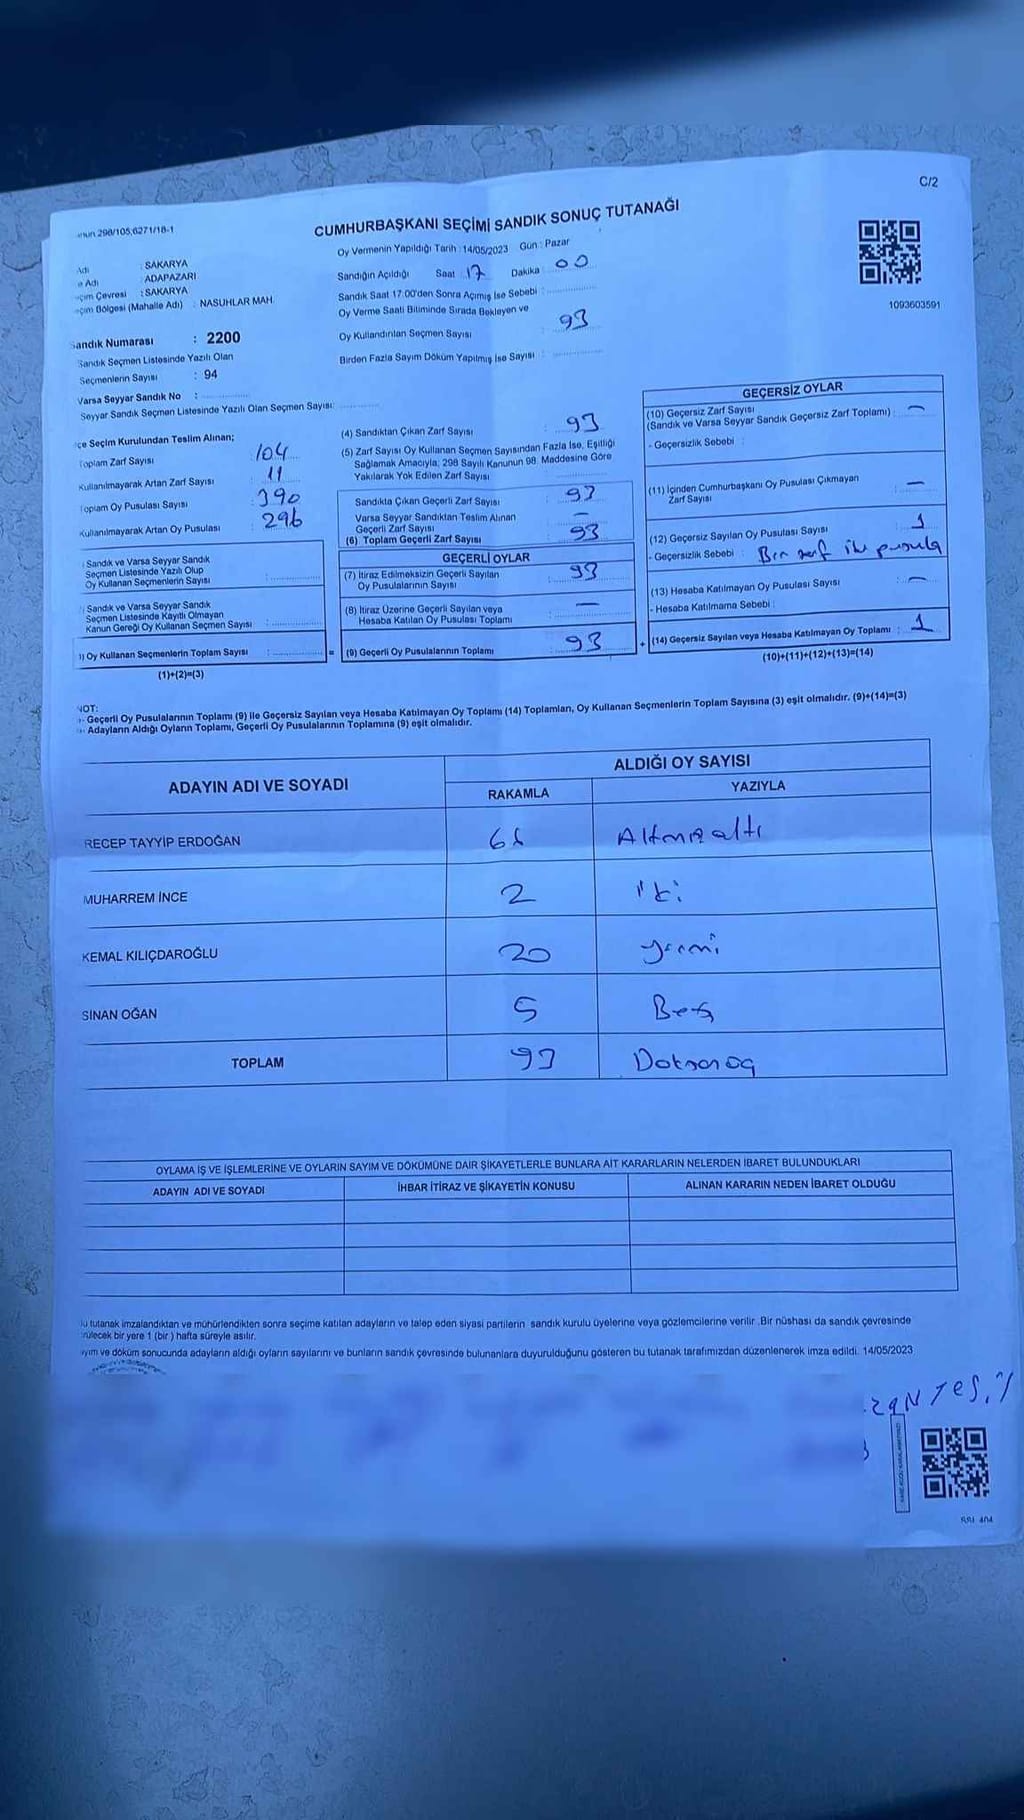 C/2
298/105;6271/18-1
CUMHURBAŞKANI SEÇİMİ SANDIK SONUÇ TUTANAĞI
Oy Vermenin Yapıldığı Tarih : 14/05/2023 Gün : Pazar
Adı : SAKARYA
Adı : ADAPAZARI
: SAKARYA
Bölgesi (Mahalle Adı) : NASUHLAR MAH.
Sandığın Açıldığı Saat 17 Dakika : 00
Sandık Saat 17:00'den Sonra Açımış İse Sebebi :
Oy Verme Saati Bitiminde Sırada Bekleyen ve
Oy Kullandırılan Seçmen Sayısı : 93
Birden Fazla Sayım Döküm Yapılmış İse Sayısı :
1093603591
Sandık Numarası : 2200
Sandık Seçmen Listesinde Yazılı Olan
Seçmenlerin Sayısı : 94
Varsa Seyyar Sandık No :
Seyyar Sandık Seçmen Listesinde Yazılı Olan Seçmen Sayısı:
Seçim Kurulundan Teslim Alınan;
Toplam Zarf Sayısı 104
Kullanılmayarak Artan Zarf Sayısı 11
Toplam Oy Pusulası Sayısı 390
Kullanılmayarak Artan Oy Pusulası 296
Sandık ve Varsa Seyyar Sandık
Seçmen Listesinde Yazılı Olup
Oy Kullanan Seçmenlerin Sayısı :
Sandık ve Varsa Seyyar Sandık
Seçmen Listesinde Kayıtlı Olmayan
Kanun Gereği Oy Kullanan Seçmen Sayısı :
) Oy Kullanan Seçmenlerin Toplam Sayısı : =
(1)+(2)=(3)
(4) Sandıktan Çıkan Zarf Sayısı : 93
(5) Zarf Sayısı Oy Kullanan Seçmen Sayısından Fazla İse, Eşitliği
Sağlamak Amacıyla, 298 Sayılı Kanunun 98. Maddesine Göre
Yakılarak Yok Edilen Zarf Sayısı
Sandıkta Çıkan Geçerli Zarf Sayısı : 93
Varsa Seyyar Sandıktan Teslim Alınan
Geçerli Zarf Sayısı : –
(6) Toplam Geçerli Zarf Sayısı : 93
GEÇERLİ OYLAR
(7) İtiraz Edilmeksizin Geçerli Sayılan
Oy Pusulalarının Sayısı : 93
(8) İtiraz Üzerine Geçerli Sayılan veya
Hesaba Katılan Oy Pusulası Toplamı : –
(9) Geçerli Oy Pusulalarının Toplamı : 93 +
GEÇERSİZ OYLAR
(10) Geçersiz Zarf Sayısı
(Sandık ve Varsa Seyyar Sandık Geçersiz Zarf Toplamı) : –
- Geçersizlik Sebebi :
(11) İçinden Cumhurbaşkanı Oy Pusulası Çıkmayan
Zarf Sayısı : –
(12) Geçersiz Sayılan Oy Pusulası Sayısı : 1
- Geçersizlik Sebebi : Bir zarf iki pusula
(13) Hesaba Katılmayan Oy Pusulası Sayısı : –
- Hesaba Katılmama Sebebi :
(14) Geçersiz Sayılan veya Hesaba Katılmayan Oy Toplamı : 1
(10)+(11)+(12)+(13)=(14)
NOT:
- Geçerli Oy Pusulalarının Toplamı (9) ile Geçersiz Sayılan veya Hesaba Katılmayan Oy Toplamı (14) Toplamları, Oy Kullanan Seçmenlerin Toplam Sayısına (3) eşit olmalıdır. (9)+(14)=(3)
- Adayların Aldığı Oyların Toplamı, Geçerli Oy Pusulalarının Toplamına (9) eşit olmalıdır.
ADAYIN ADI VE SOYADI
ALDIĞI OY SAYISI
RAKAMLA YAZIYLA
RECEP TAYYİP ERDOĞAN 66 Altmışaltı
MUHARREM İNCE 2 iki
KEMAL KILIÇDAROĞLU 20 yirmi
SİNAN OĞAN 5 Beş
TOPLAM 93 Doksanüç
OYLAMA İŞ VE İŞLEMLERİNE VE OYLARIN SAYIM VE DÖKÜMÜNE DAİR ŞİKAYETLERLE BUNLARA AİT KARARLARIN NELERDEN İBARET BULUNDUKLARI
ADAYIN ADI VE SOYADI İHBAR İTİRAZ VE ŞİKAYETİN KONUSU ALINAN KARARIN NEDEN İBARET OLDUĞU
tutanak imzalandıktan ve mühürlendikten sonra seçime katılan adayların ve talep eden siyasi partilerin sandık kurulu üyelerine veya gözlemcilerine verilir .Bir nüshası da sandık çevresinde
bir yere 1 (bir ) hafta süreyle asılır.
ve döküm sonucunda adayların aldığı oyların sayılarını ve bunların sandık çevresinde bulunanlara duyurulduğunu gösteren bu tutanak tarafımızdan düzenlenerek imza edildi. 14/05/2023